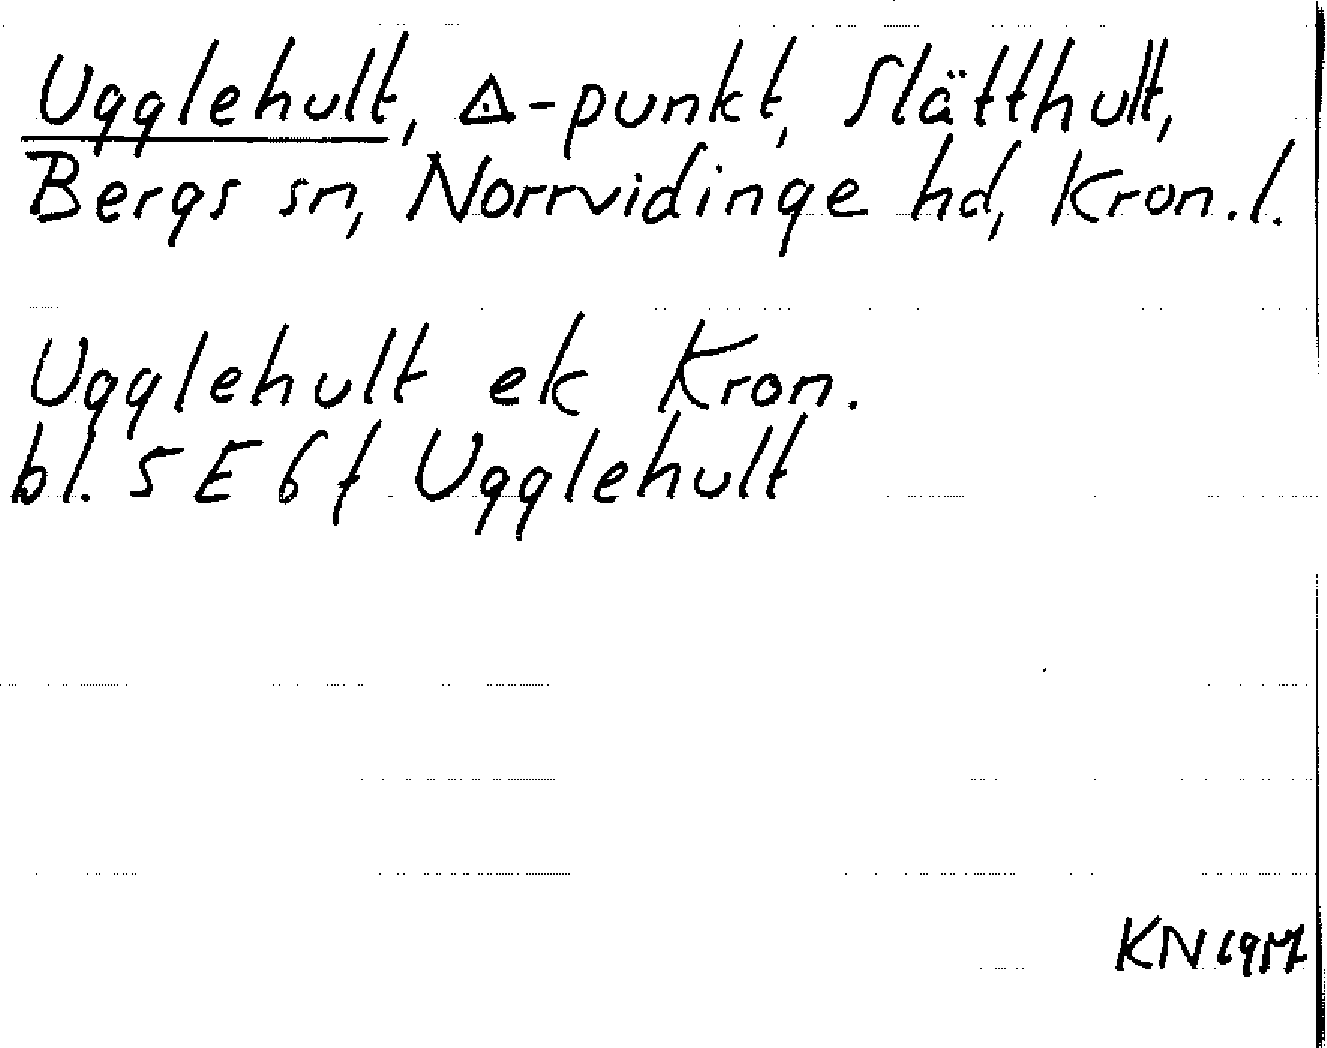 Ugglehult, ◬-punkt, Slätthult,
Bergs sn, Norrvidinge hd, Kron.l.
Ugglehult ek Kron.
bl. 5 E 6 f Ugglehult
KN 1957